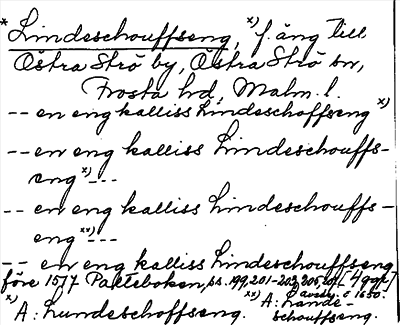 * Lindeschouffseng, x) f. äng till
Östra Strö by, Östra Strö sn,
Frosta hd, Malm. l.
-- en eng kalliss Lindeschoffseng x)
-- en eng kalliss Lindeschouffs-
eng x) ---
-- en eng kalliss Lindeschouffs-
eng xx) ---
-- en eng kalliss Lindeschouffseng
före 1577 Palteboken, ss. 199, 201-203, 205, 207 [4 ggr]
avskr. c 1650.
x) A: Lundeschoffseng. xx) A: Lande-
schouffseng.